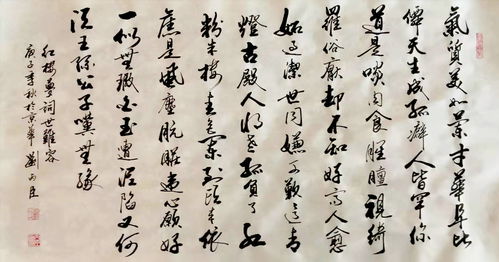 氣質美如蘭才華阜比
僊天生成孤癖人皆罕你
道是啖肉食腥膻視綺
羅俗厭却不知好高人愈
妬過潔世同嫌可歎這青
燈古殿人將老孤負了紅
粉朱樓春色闌到頭來依
舊是風塵骯髒違心願好
一似無瑕白玉遭泥陷又何
須王孫公子嘆無緣
紅樓夢詞世難容
庚子季秋於京華劉